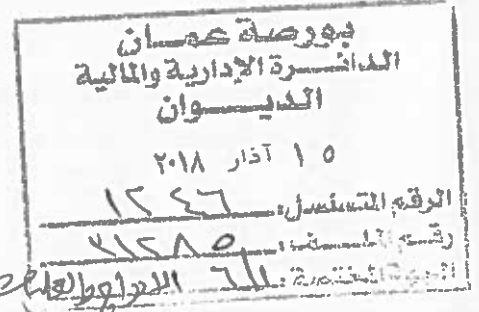 بورصة عمان
الدائرة الإدارية والمالية
الديوان
١٥ آذار ٢٠١٨
الرقم المتسلسل: ١٢٤٦
رقم الملف: ٣١٢٨٥
الجهة المختصة: